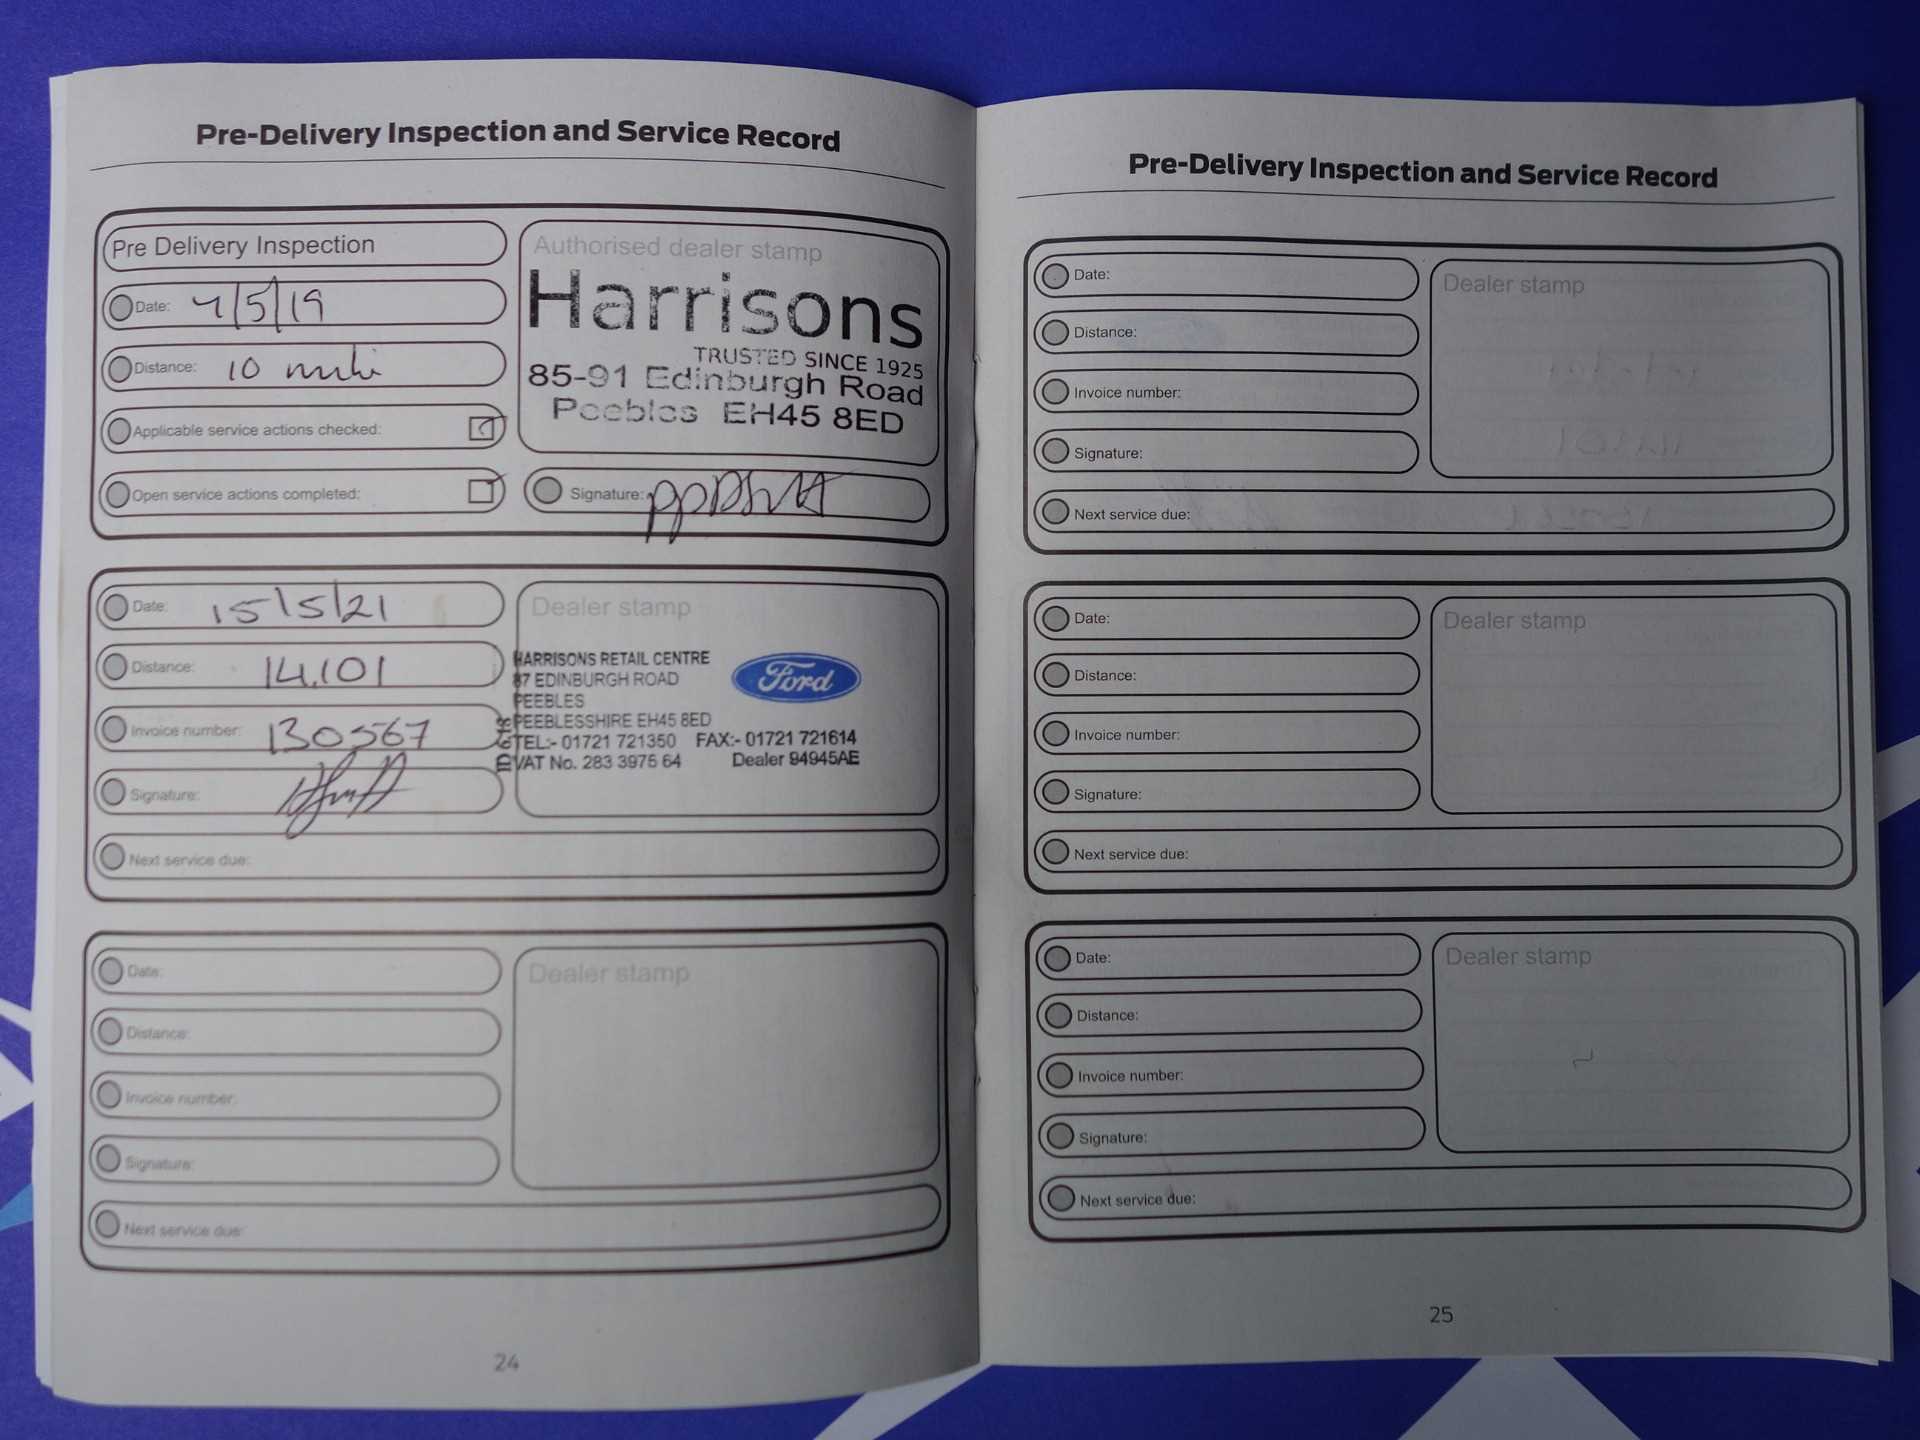 Pre-Delivery Inspection and Service Record
Pre Delivery Inspection
Date: 7/5/19
Distance: 10 miles
Applicable service actions checked:
Open service actions completed:
Authorised dealer stamp
Harrisons
TRUSTED SINCE 1925
85-91 Edinburgh Road
Peebles EH45 8ED
Signature:
Date: 15/5/21
Distance: 14,101
Invoice number: 130567
Signature:
Next service due:
Dealer stamp
HARRISONS RETAIL CENTRE
87 EDINBURGH ROAD
PEEBLES
PEEBLESSHIRE EH45 8ED
TEL:- 01721 721350 FAX:- 01721 721614
VAT No. 283 3975 64 Dealer 94945AE
Ford
Date:
Distance:
Invoice number:
Signature:
Next service due:
Dealer stamp
24
Pre-Delivery Inspection and Service Record
Date:
Distance:
Invoice number:
Signature:
Next service due:
Dealer stamp
Date:
Distance:
Invoice number:
Signature:
Next service due:
Dealer stamp
Date:
Distance:
Invoice number:
Signature:
Next service due:
Dealer stamp
25